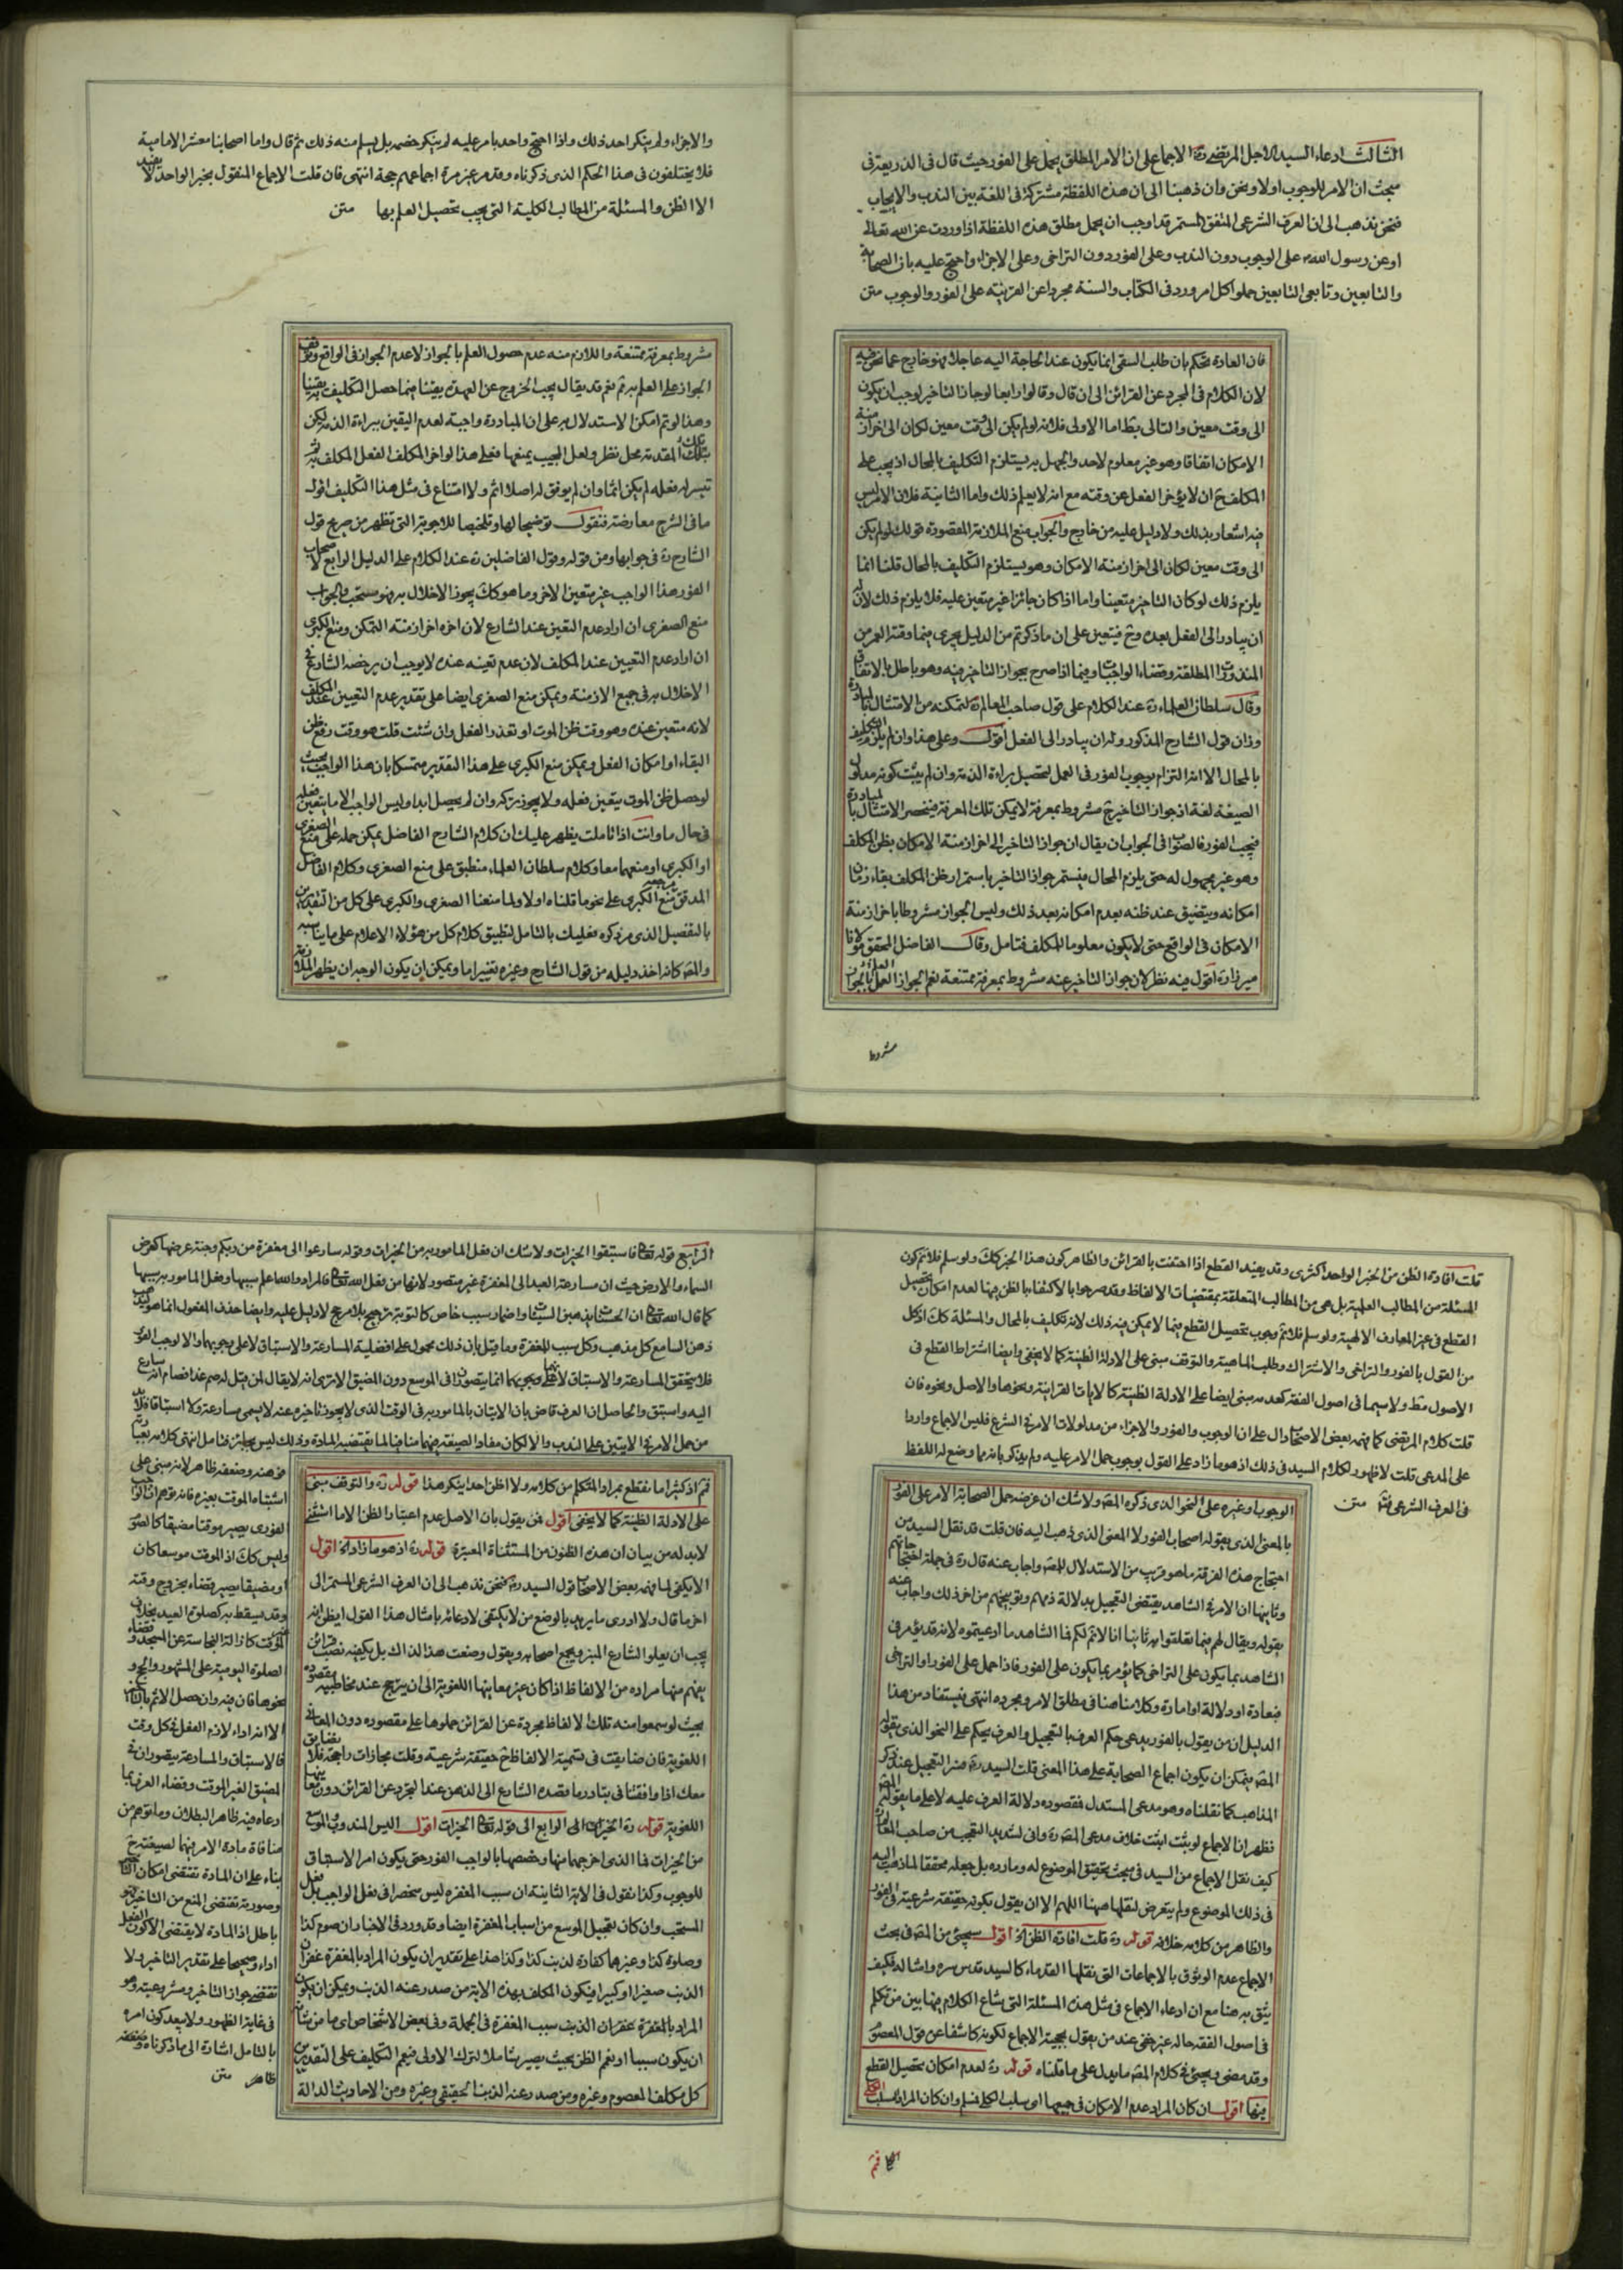 الثالث ادعاء السيد الاجل المرتضى ره الاجماع على ان الامر المطلق يحمل على الفور حيث قال فى الذريعة فى
مبحث ان الامر للوجوب اولا ونحن وان ذهبنا الى ان هذه اللفظة مشتركة فى اللغة بين الندب والايجاب
فنحن نذهب الى ان العرف الشرعى المتفق المستمر قد اوجب ان يحمل مطلق هذه اللفظة اذا وردت عن الله تعالى
او عن رسول الله على الوجوب دون الندب وعلى الفور دون التراخى وعلى الاجزاء واحتج عليه بان الصحابة
والتابعين وتابعى التابعين حملوا كل امر ورد فى الكتاب والسنة مجردا عن القرينة على الفور والوجوب متن
فان العادة تحكم بان طلب السقى انما يكون عند الحاجة اليه عاجلا فهو خارج عما نحن فيه
لان الكلام فى المجرد عن القرائن الى ان قال وقالوا رابعا لو جاز التاخير لوجب ان يكون
الى وقت معين والتالى بط اما الاولى فلانه لو لم يكن الى وقت معين لكان الى اخر ازمنة
الامكان اتفاقا وهو غير معلوم لاحد والجهل به يستلزم التكليف بالمحال اذ يجب على
المكلف ح ان لا يؤخر الفعل عن وقته مع انه لا يعلم ذلك واما الثانية فلان الامر ليس
فيه اشعار بذلك ولا دليل عليه من خارج والجواب منع الملازمة المقصودة قولك لو لم يكن
الى وقت معين لكان الى اخر ازمنة الامكان وهو يستلزم التكليف بالمحال قلنا انما
يلزم ذلك لو كان التاخير متعينا واما اذا كان جائزا غير متعين عليه فلا يلزم ذلك لان له
ان يبادر الى الفعل بعده وح فيتعين على ان ما ذكرتم من الدليل يجرى فيما وقته العمر من
المنذورات المطلقة وقضاء الواجبات وفيما اذا صرح بجواز التاخير فيه وهو باطل بالاتفاق
وقال سلطان العلماء ره عند الكلام على قول صاحب المعالم ره لتمكنه من الامتثال بالمبادرة
وزان قول الشارح المذكور وله ان يبادر الى الفعل اقول وعلى هذا وان لم يلزم التكليف
بالمحال الا انه التزام بوجوب الفور فى العمل لتحصيل براءة الذمة وان لم يثبت كونه مدلول
الصيغة لغة اذ جواز التاخير ح مشروط بمعرفة لا يمكن تلك المعرفة فينحصر الامتثال بالمبادرة
فيجب الفور فالصواب فى الجواب ان يقال ان جواز التاخير الى اخر ازمنة الامكان بظن المكلف
وهو غير مجهول له حتى يلزم المحال فيستمر جواز التاخير باستمرار ظن المكلف بقاء زمان
امكانه ويتضيق عند ظنه بعدم امكانه بعد ذلك وليس الجواز مشروطا باخر ازمنة
الامكان فى الواقع حتى لا يكون معلوما للمكلف فتامل وقال الفاضل المحقق مولانا
ميرزا ره اقول فيه نظر لان جواز التاخير عنه مشروط بمعرفة ممتنعة نعم الجواز العلم بالجواز
مشروط
والاجزاء ولم ينكر احد ذلك واذا احتج واحد بامر عليه لم ينكر خصمه بل يسلم منه ذلك ثم قال واما اصحابنا معشر الامامية
فلا يختلفون فى هذا الحكم الذى ذكرناه وقد مر غير مرة اجماعهم حجة انتهى فان قلت الاجماع المنقول بخبر الواحد لا يفيد
الا الظن والمسئلة من المطالب الكلية التى يجب تحصيل العلم بها متن
مشروط بمعرفة ممتنعة واللازم منه عدم حصول العلم بالجواز لا عدم الجواز فى الواقع وتوقف
الجواز على العلم به ثم نعم قد يقال يجب الخروج عن العهدة يقينا فيما حصل التكليف به يقينا
وهذا لو تم امكن الاستدلال به على ان المبادرة واجبة لعدم اليقين ببراءة الذمة لكن
تلك المقدمة محل نظر ولعل المجيب يمنعها فعلى هذا لو اخر المكلف الفعل المكلف به
تيسر له فعله لم يكن اثما وان لم يوفق له اصلا اثم ولا امتناع فى مثل هذا التكليف اقول
ما فى الشرح معارضة فنقول توضيحا لها وتلخيصا للاجوبة التى تظهر من صريح قول
الشارح ره فى جوابها ومن قوله وقول الفاضلين ره عند الكلام على الدليل الرابع لاصحاب
الفور هذا الواجب غير متعين الاخر وما هو كك يجوز الاخلال به فهو مستحب والجواب
منع الصغرى ان اراد عدم التعين عند الشارع لان اخره اخر ازمنة التمكن ومنع الكبرى
ان اراد عدم التعيين عند المكلف لان عدم تعينه عنده لا يوجب ان يرخصه الشارع فى
الاخلال به فى جميع الازمنة ويمكن منع الصغرى ايضا على تقدير عدم التعيين عند المكلف
لانه متعين عنده وهو وقت ظن الموت او تعذر الفعل وان شئت قلت هو وقت رفع ظن
البقاء او امكان الفعل ويمكن منع الكبرى على هذا التقدير متمسكا بان هذا الواجب بحيث
لو حصل ظن الموت يتعين فعله ولا يجوز تركه وان لم يحصل ابدا وليس الواجب الا ما يتعين فعله
فى حال ما وانت اذا تاملت يظهر عليك ان كلام الشارح الفاضل يمكن حمله على منع الصغرى
او الكبرى او منعهما معا وكلام سلطان العلماء منطبق على منع الصغرى وكلام الفاضل
المدقق منع الكبرى على نحو ما قلناه اولا ولما منعنا الصغرى والكبرى على كل من التقديرين
بالتفصيل الذى مر ذكره فعليك بالتامل لتطبيق كلام كل من هؤلاء الاعلام على ما يناسبه
والمص كانه اخذ دليله من قول الشارح وغيره تغييرا ما ويمكن ان يكون الوجه ان يظهر الملازمة
قلت افادة الظن من الخبر الواحد اكثرى وقد يفيد القطع اذا احتفت بالقرائن والظاهر كون هذا الخبر كك ولو سلم فلا ثم كون
المسئلة من المطالب العلمية بل هى من المطالب المتعلقة بمقتضيات الالفاظ وقد صرحوا بالاكتفاء بالظن فيها لعدم امكان تحصيل
القطع فى غير المعارف الالهية ولو سلم فلا ثم وجوب تحصيل القطع فيما لا يمكن فيه ذلك لانه تكليف بالمحال والمسئلة كك اذ كل
من القول بالفور والتراخى والاشتراك وطلب الماهية والتوقف مبنى على الادلة الظنية كما لا يخفى وايضا اشتراط القطع فى
الاصول مط ولا سيما فى اصول الفقه كعدمه مبنى ايضا على الادلة الظنية كالايات القرانية ونحوها والاصل ونحوه فان
قلت كلام المرتضى كما فهمه بعض الاصحاب دال على ان الوجوب والفور والاجزاء من مدلولات الامر فى الشرع فليس الاجماع واردا
على المدعى قلت لا ظهور لكلام السيد فى ذلك اذ هو ما زاد على القول بوجوب حمل الامر عليه ولم يذكر بانه مما وضع له اللفظ
فى العرف الشرعى متن
الوجوب وغيره على النحو الذى ذكره المص ولا شك ان غرضه حمل الصحابة الامر على الفور
بالمعنى الذى يقوله اصحاب الفور لا المعنى الذى ذهب اليه فان قلت قد نقل السيد من
احتجاج هذه الفرقة ما هو قريب من الاستدلال للمص واجاب عنه قال ره فى جملة احتجاجاتهم
وثانيها ان الامر فى الشاهد يقتضى التعجيل بدلالة ذمهم وتوبيخهم من اخر ذلك واجاب عنه
بقوله ويقال لهم فيما تعلقوا به ثانيا انا لا نثم لكم فى الشاهد ما ادعيتموه لانه قد يؤمر فى
الشاهد بما يكون على التراخى كما يؤمر بما يكون على الفور فاذا حمل على الفور او التراخى
فبعادة او دلالة او امارة وكلامنا هنا فى مطلق الامر ومجرده انتهى فيستفاد من هذا
الدليل ان من يقول بالفور يدعى حكم العرف بالتعجيل والعرف يحكم على النحو الذى يقوله
المص فيمكن ان يكون اجماع الصحابة على هذا المعنى قلت السيد ره فسر التعجيل عند ذكر
المذاهب كما نقلناه وهو مدعى المستدل فمقصوده دلالة العرف عليه لا على ما يقوله المص
فظهر ان الاجماع لو يثبت اثبت خلاف مدعى المص ره وانى لشديد التعجب من صاحب المعالم
كيف نقل الاجماع من السيد فى مبحث تحقيق الموضوع له وما رده بل جعله محققا لما ذهب اليه
فى ذلك الموضوع ولم يتعرض لنقلها هيهنا اللهم الا ان يقول بكونه حقيقة شرعية فى الفور
والظاهر من كلامه خلافه قوله ره قلت افادة الظن اقول سيجئ من المص فى بحث
الاجماع عدم الوثوق بالاجماعات التى نقلها القدماء كالسيد قدس سره وامثاله فكيف
يثق به هنا مع ان ادعاء الاجماع فى مثل هذه المسئلة التى شاع الكلام فيها بين من تكلم
فى اصول الفقه حاله غير خفى عند من يقول بحجية الاجماع لكونه كاشفا عن قول المعصوم
وقد مضى ويجئ فى كلام المص ما يدل على ما قلناه قوله ره لعدم امكان تحصيل القطع
فيها اقول ان كان المراد عدم الامكان فى جميعها اى سلب الكلى فمسلم وان كان المراد السلب الكلى
فثم
الرابع قوله تعالى فاستبقوا الخيرات ولا شك ان فعل المامور به من الخيرات وقوله سارعوا الى مغفرة من ربكم وجنة عرضها كعرض
السماء والارض حيث ان مسارعة العبد الى المغفرة غير متصور لانها من فعل الله تعالى فالمراد والله اعلم سببها وفعل المامور به سببها
كما قال الله تعالى ان الحسنات يذهبن السيئات واضمار سبب خاص كالتوبة ترجيح بلا مرجح لا دليل عليه وايضا حذف المفعول انما هو ليذهب
ذهن السامع كل مذهب وكل سبب للمغفرة وما قيل بان ذلك محمول على افضلية المسارعة والاستباق لا على وجوبهما والا لوجب الفور
فلا يتحقق المسارعة والاستباق لانهما انما يتصوران فى الموسع دون المضيق الا ترى انه لا يقال لمن قيل له صم غدا فصام انه سارع
اليه واستبق والحاصل ان العرف قاض بان الاتيان بالمامور به فى الوقت الذى لا يجوز تاخيره عنه لا يسمى مسارعة ولا استباقا فلا بد
من حمل الامر فى الايتين على الندب والا لكان مفاد الصيغة فيهما منافيا لما يقتضيه المادة وذلك ليس بجائز فتامل انتهى كلامه
فوهنه وضعفه ظاهر لانه مبنى على
اشتباه الموقت بغيره فانه توهم ان الواجب
الفورى يصير موقتا مضيقا كالصوم
وليس كك اذ الموقت موسعا كان
او مضيقا يصير قضاء بخروج وقته
وقد يسقط به كصلوة العيد بخلاف
الموقت كازالة النجاسة عن المسجد وقضاء
الصلوة اليومية على المشهور والحج و
نحوها فان فيه وان حصل الاثم بالتاخير
الا انه اداء لازم الفعل فى كل وقت
فالاستباق والمسارعة يتصوران فى
المضيق الغير الموقت وقضاء العرف بما
ادعاه فيه ظاهر البطلان وما توهم من
منافاة مادة الامر فيهما لصيغته ح
بناء على ان المادة تقتضى امكان التاخير
وصورته تقتضى المنع من التاخير فهو
باطل اذ المادة لا يقتضى الا كون الفعل
اداء وصحيحا على تقدير التاخير ولا
تقتضى جواز التاخير ومشروعيته وهو
فى غاية الظهور ولا يبعد كون امره
بالتامل اشارة الى ما ذكرناه وضعفه
ظاهر متن
فثم اذ كثيرا ما نقطع بمراد المتكلم من كلامه ولا اظن احدا ينكر هذا قوله ره والتوقف مبنى
على الادلة الظنية كما لا يخفى اقول فمن يقول بان الاصل عدم اعتبار الظن الا ما استثنى
لا بد له من بيان ان هذه الظنون من المستثناة المعتبرة قوله ره اذ هو ما زاد اقول
الا يكفى لما فهمه بعض الاصحاب قول السيد ره فنحن نذهب الى ان العرف الشرعى المستمر الى
اخر ما قال ولا ادرى ما يريد بالوضع من لا يكتفى لادعائه بامثال هذا القول ايظن انه
يجب ان يعلو الشارع المنبر ويجمع اصحابه ويقول وضعت هذا لذاك بل يكفيه نصب قرائن
يفهم منها مراده من الالفاظ اذا كان غير معانيها اللغوية الى ان يترجح عند مخاطبيه مقصوده
بحيث لو سمعوا منه تلك الالفاظ مجردة عن القرائن حملوها على مقصوده دون المعانى
اللغوية فان ضايقت فى تسمية الالفاظ ح حقيقة شرعية وقلت مجازات راجحة فلا نضايق
معك اذا وافقتنا فى تبادر ما قصده الشارع الى الذهن عند التجرد عن القرائن دون معانيها
اللغوية قوله ره الخيرات الى الرابع الى قوله تعالى الخيرات اقول اليس المندوب والموسع
من الخيرات فما الذى اخرجهما منها وخصصها بالواجب الفور حتى يكون امر الاستباق
للوجوب وكذا نقول فى الاية الثانية ان سبب المغفره ليس منحصرا فى فعل الواجب بل فعل
المستحب وان كان تعجيل الموسع من اسباب المغفرة ايضا وقد ورد فى الاخبار ان صوم كذا
وصلوة كذا وغيرهما كفارة لذنب كذا وكذا هذا على تقدير ان يكون المراد بالمغفرة غفران
الذنب صغيرا او كبيرا فيكون المكلف بهذه الاية من صدر عنه الذنب ويمكن ان يكون
المراد بالمغفرة غفران الذنب سبب المغفرة فى الجملة وفى بعض الاشخاص اى ما من شانه
ان يكون سببا او نعم الظن بحيث يصير شاملا لترك الاولى فيعم التكليف على التقديرين
كل مكلف المعصوم وغيره ومن صدر عنه الذنب الحقيقى وغيره ومن الاحاديث الدالة